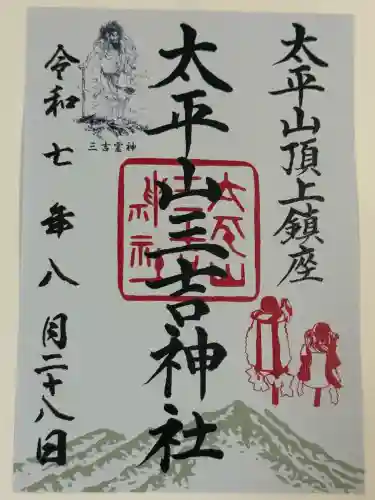 太平山頂上鎮座
太平山三吉神社
三吉霊神
令和七年八月二十八日
太平山
三吉
神社